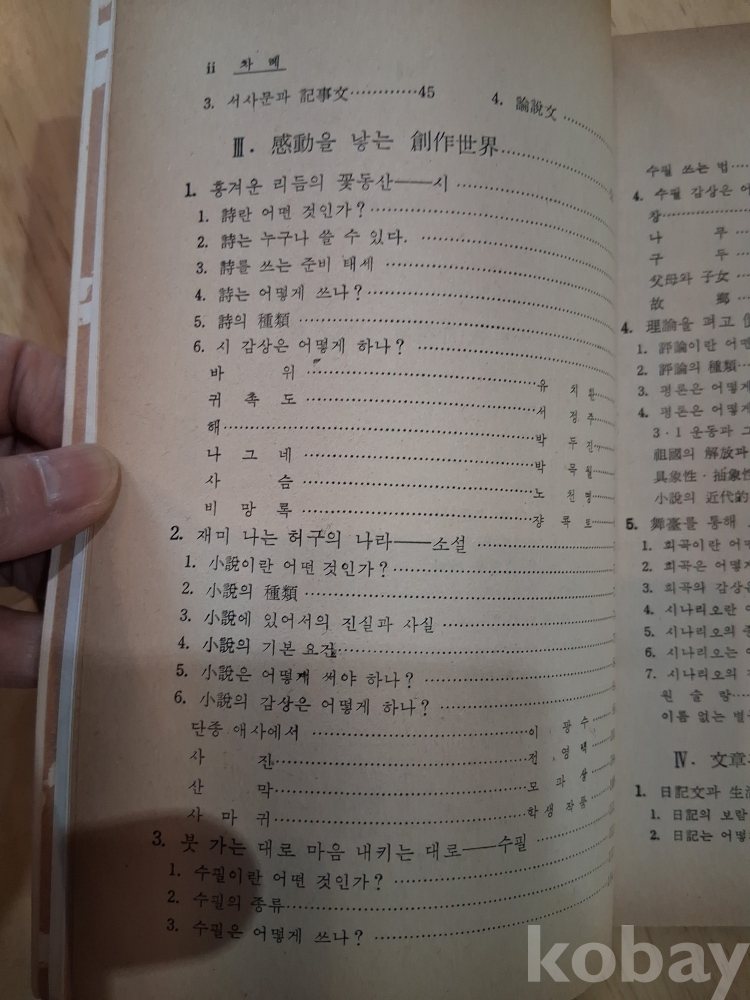 ii 차 례
3. 서사문과 記事文…………45 4. 論說文
Ⅲ. 感動을 낳는 創作世界
1. 흥겨운 리듬의 꽃동산——시
1. 詩란 어떤 것인가?
2. 詩는 누구나 쓸 수 있다.
3. 詩를 쓰는 준비 태세
4. 詩는 어떻게 쓰나?
5. 詩의 種類
6. 시 감상은 어떻게 하나?
바 위 유 치 환
귀 촉 도 서 정 주
해 박 두 진
나 그 네 박 목 월
사 슴 노 천 명
비 망 록 쟝 콕 토
2. 재미 나는 허구의 나라——소설
1. 小說이란 어떤 것인가?
2. 小說의 種類
3. 小說에 있어서의 진실과 사실
4. 小說의 기본 요건
5. 小說은 어떻게 써야 하나?
6. 小說의 감상은 어떻게 하나?
단종 애사에서 이 광 수
사 진 전 영 택
산 막 모 파 상
사 마 귀 학생 작품
3. 붓 가는 대로 마음 내키는 대로——수필
1. 수필이란 어떤 것인가?
2. 수필의 종류
3. 수필은 어떻게 쓰나?
수필 쓰는 법
4. 수필 감상은 어
장
나 무
구 두
父母와 子女
故 鄕
4. 理論을 펴고
1. 評論이란 어떤
2. 評論의 種類
3. 평론은 어떻게
4. 평론은 어떻게
3·1 운동과 그
祖國의 解放과
具象性·抽象性
小說의 近代的
5. 舞臺를 통해
1. 희곡이란 어떤
2. 희곡은 어떻게
3. 희곡의 감상은
4. 시나리오란 어
5. 시나리오의 종
6. 시나리오는 어
7. 시나리오의
원 술 랑
이름 없는 별
Ⅳ. 文章
1. 日記文과 生活
1. 日記의 보람
2. 日記는 어떻
kobay